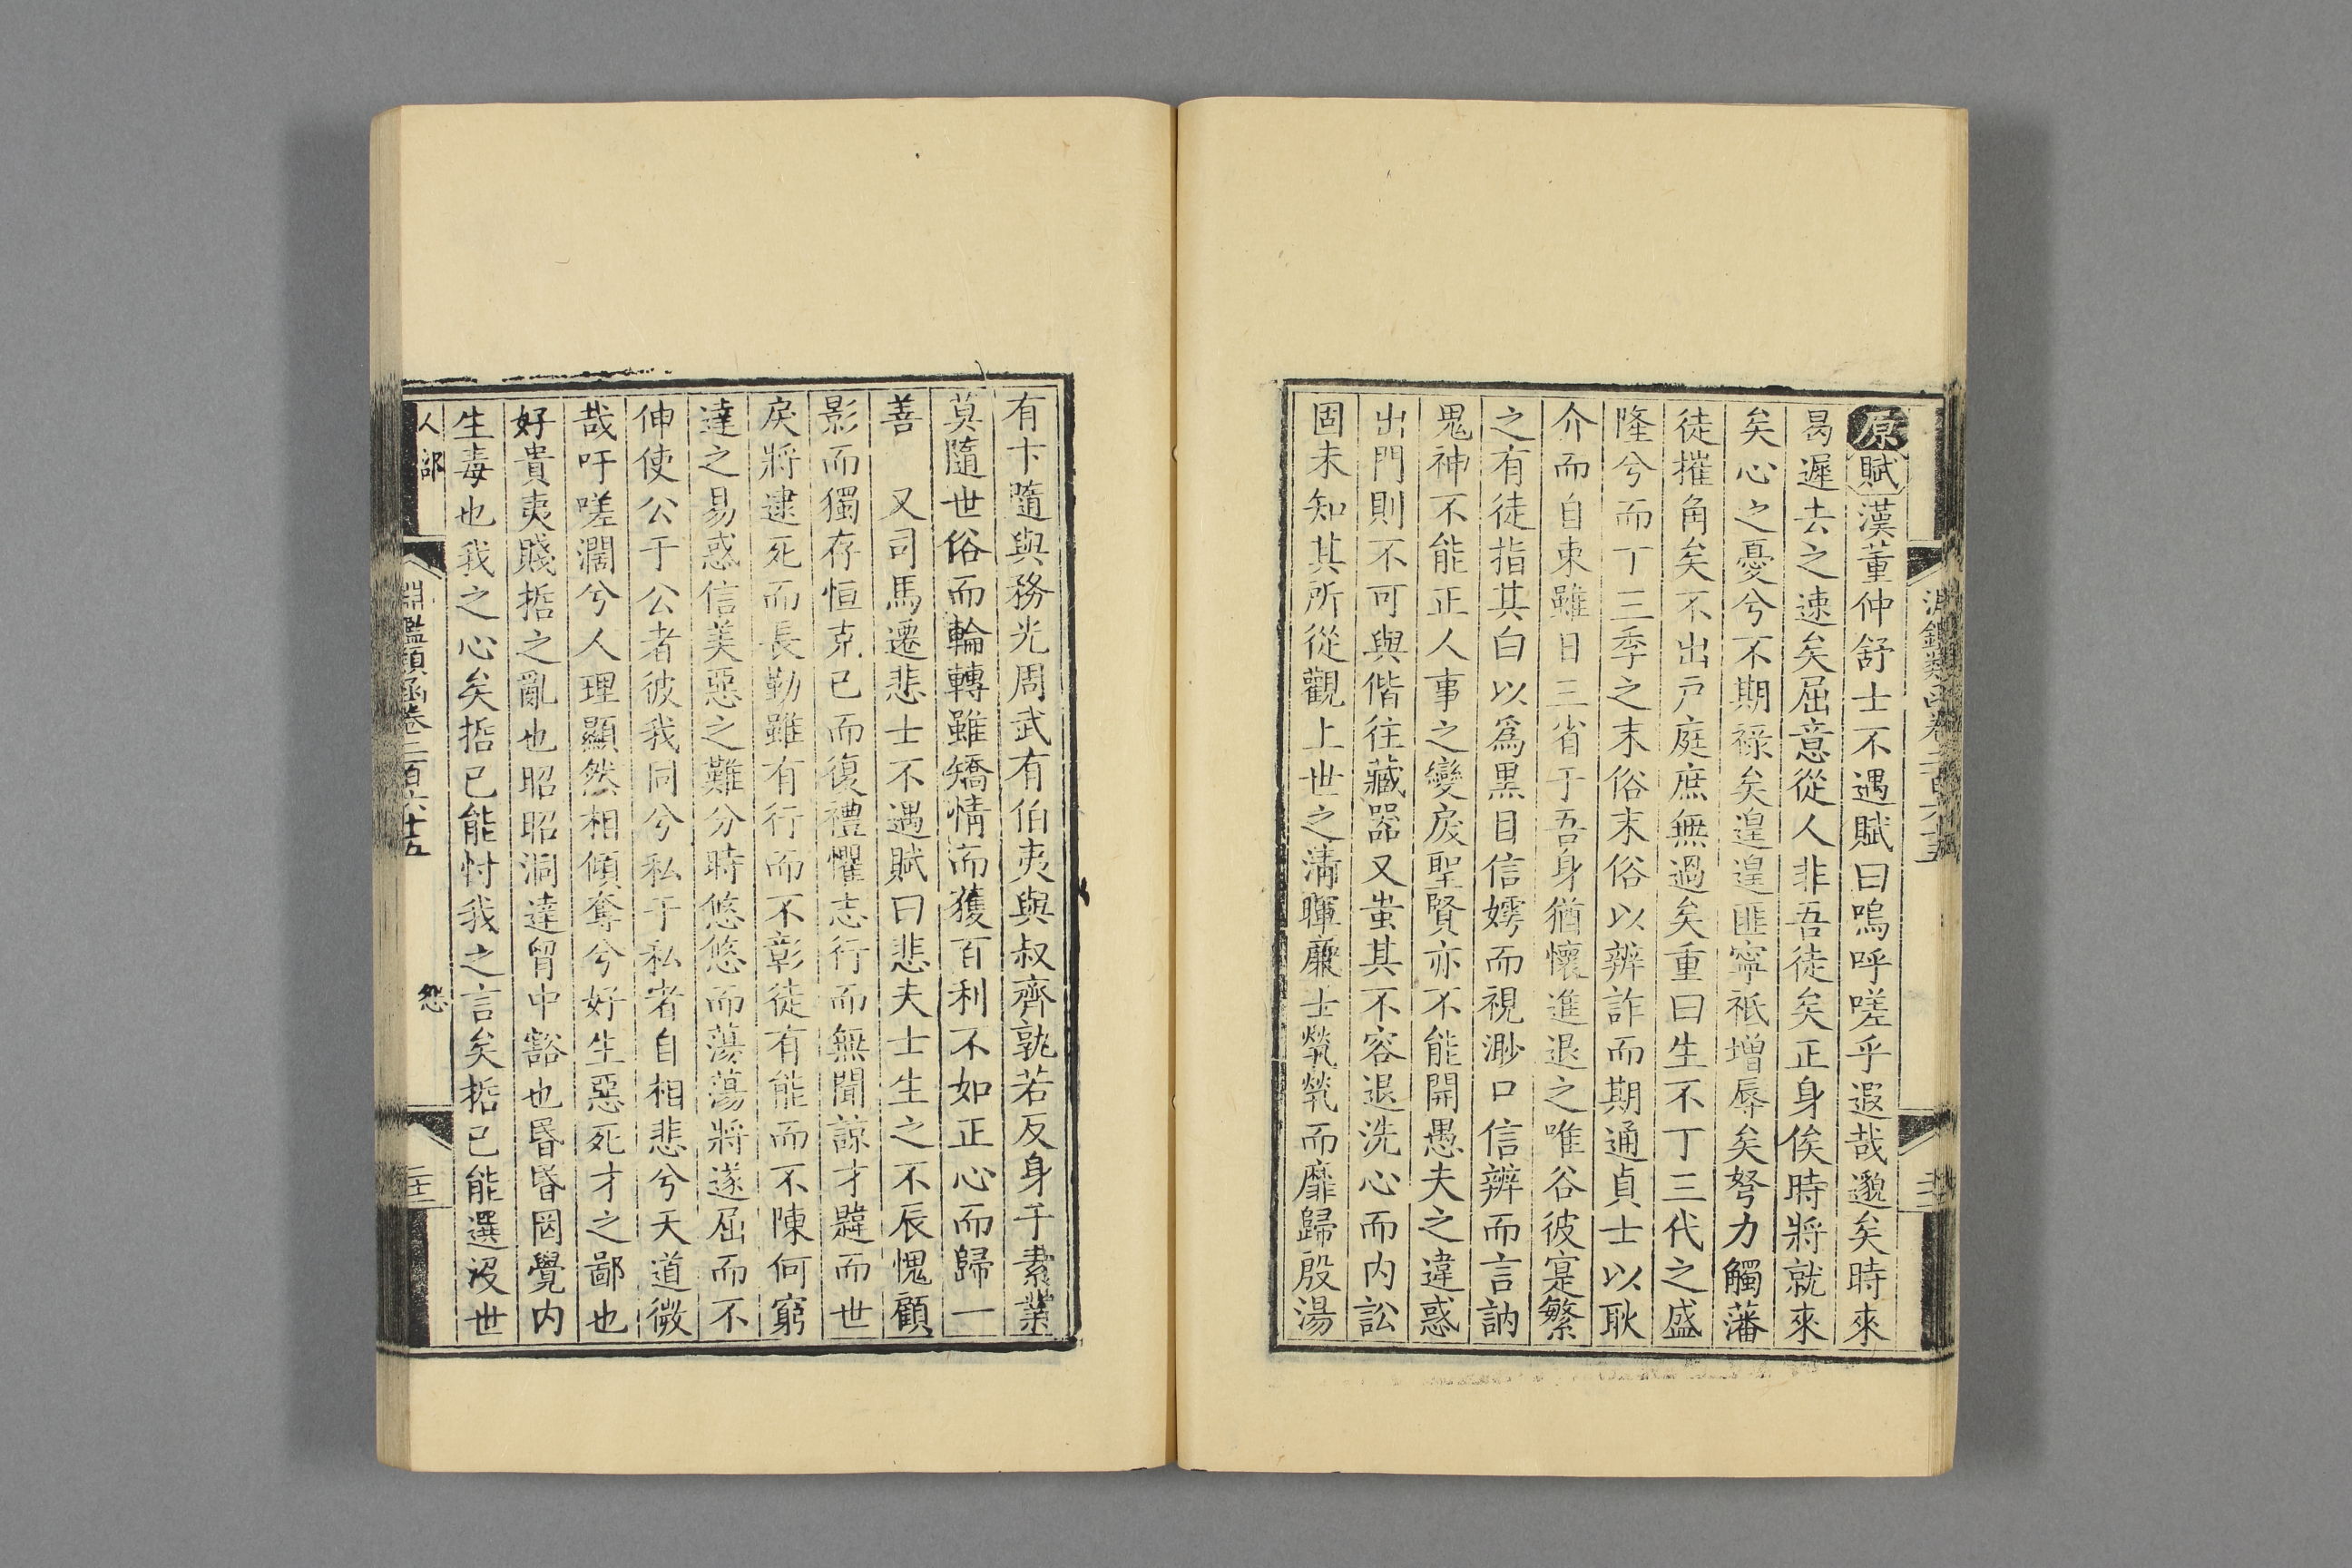 原賦漢董仲舒士不遇賦曰嗚呼嗟乎遐哉邈矣時來
曷遲去之速矣屈意從人非吾徒矣正身俟時將就來
矣心之憂兮不期祿矣遑遑匪寧祗增辱矣努力觸藩
徒摧角矣不出戸庭庶無過矣重曰生不丁三代之盛
隆兮而丁三季之末俗末俗以辨詐而期通貞士以耿
介而自束雖日三省于吾身猶懷進退之唯谷彼寔繁
之有徒指其白以爲黑目信嫮而視渺口信辨而言訥
鬼神不能正人事之變戾聖賢亦不能開愚夫之違惑
出門則不可與偕往藏器又蚩其不容退洗心而内訟
固未知其所從觀上世之淸暉廉士煢煢而靡歸殷湯
有卞隨與務光周武有伯夷與叔齊孰若反身于素業
莫隨世俗而輪轉雖矯情而獲百利不如正心而歸一
善　又司馬遷悲士不遇賦曰悲夫士生之不辰愧顧
影而獨存恒克已而復禮懼志行而無聞諒才韙而世
戾將逮死而長勤雖有行而不彰徒有能而不陳何窮
達之易惑信美惡之難分時悠悠而蕩蕩將遂屈而不
伸使公于公者彼我同兮私于私者自相悲兮天道微
哉吁嗟濶兮人理顯然相傾奪兮好生惡死才之鄙也
好貴夷賤哲之亂也昭昭洞達胷中豁也昏昏罔覺内
生毒也我之心矣哲已能忖我之言矣哲已能選没世
人部
淵鑑類函卷二百六十五
怨